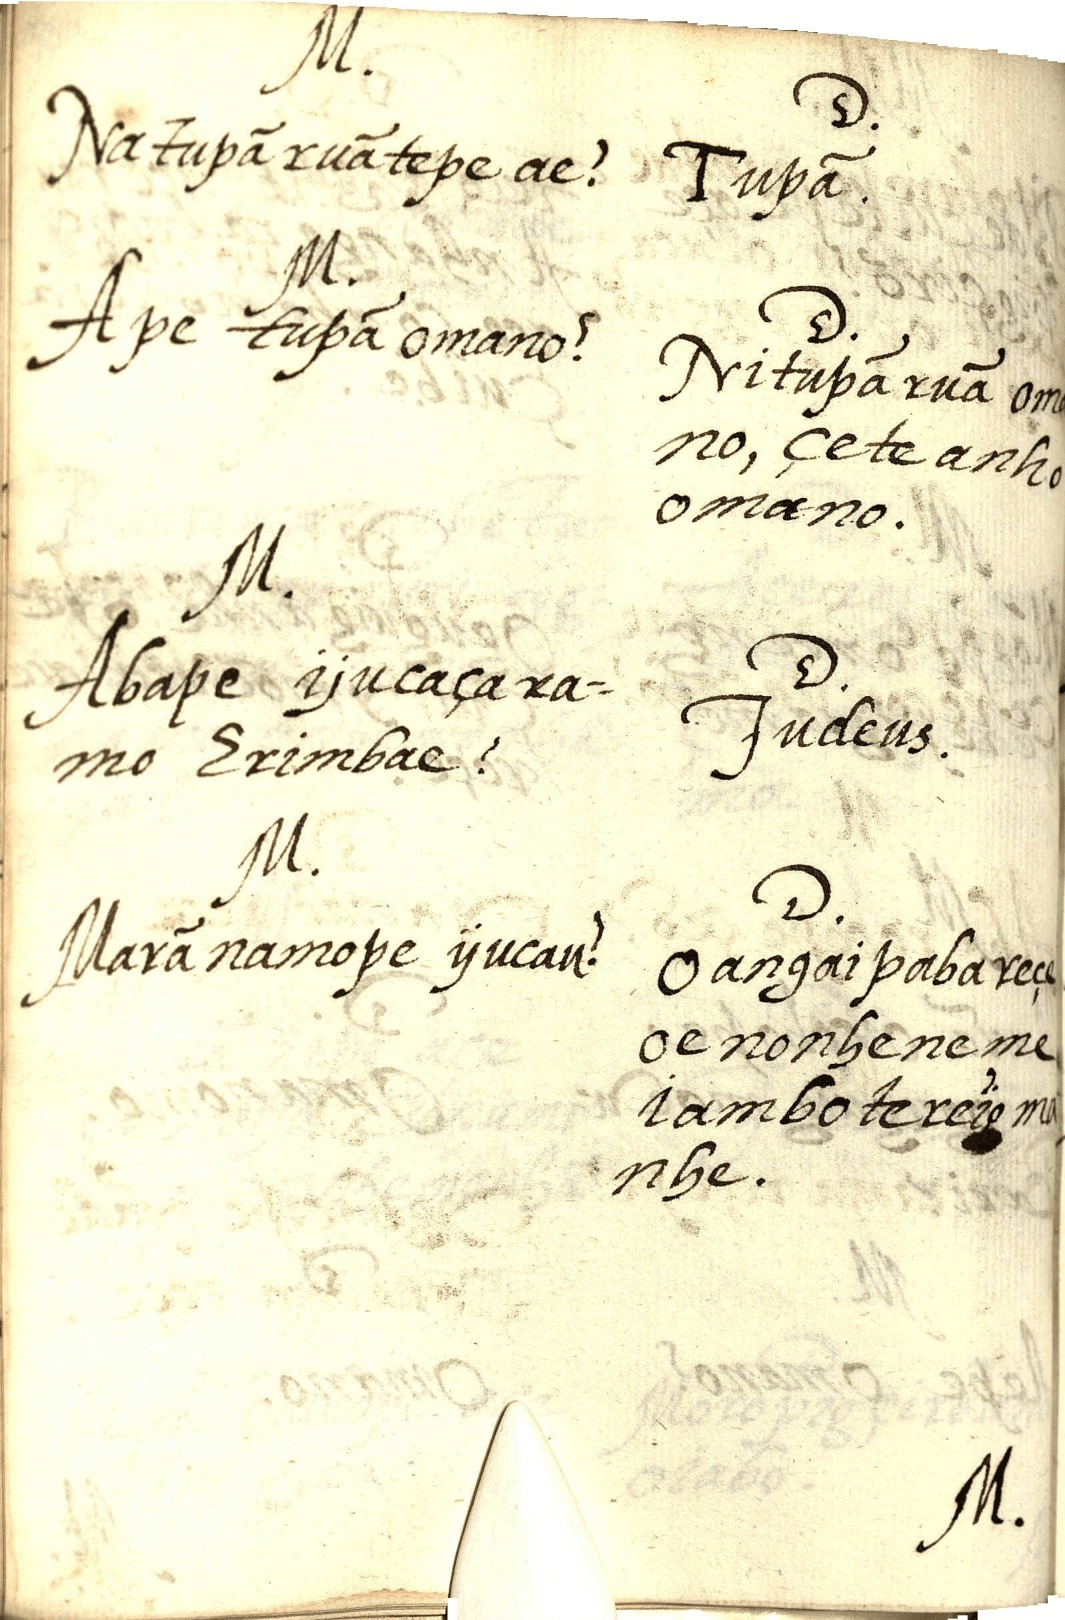 M.
Na tupã ruãtepe ae?
D.
Tupã.
M.
Ape tupã omano?
D.
Ni tupã ruã om
no, çete anho
omano.
M.
Abape ijucaçara-
mo Erimbae?
D.
Judeus.
M.
Marãnamope ijucau?
D.
O angaipaba reçe
oe nonhe ne me
iambo te
nhe.
M.